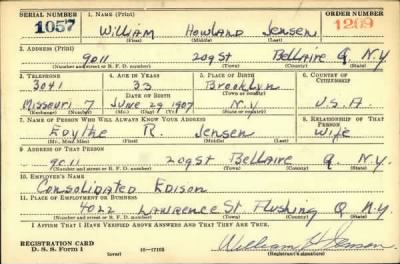 SERIAL NUMBER 1. NAME (Print) ORDER NUMBER
1057 William Howland Jensen 1209
(First) (Middle) (Last)
2. ADDRESS (Print)
9011 209 St Bellaire Q. N.Y.
(Number and street or R. F. D. number) (Town) (County) (State)
3. TELEPHONE 4. AGE IN YEARS 5. PLACE OF BIRTH 6. COUNTRY OF CITIZENSHIP
3041 33 Brooklyn
DATE OF BIRTH (Town or county)
Missouri 7 June 29 1907 N.Y. U.S.A.
(Exchange) (Number) (Mo.) (Day) (Yr.) (State or country)
7. NAME OF PERSON WHO WILL ALWAYS KNOW YOUR ADDRESS 8. RELATIONSHIP OF THAT PERSON
Edythe R. Jensen Wife
(Mr., Mrs., Miss) (First) (Middle) (Last)
9. ADDRESS OF THAT PERSON
9011 209 St Bellaire Q. N.Y.
(Number and street or R. F. D. number) (Town) (County) (State)
10. EMPLOYER'S NAME
Consolidated Edison
11. PLACE OF EMPLOYMENT OR BUSINESS
4022 Lawrence St Flushing Q N.Y.
(Number and street or R. F. D. number) (Town) (County) (State)
I AFFIRM THAT I HAVE VERIFIED ABOVE ANSWERS AND THAT THEY ARE TRUE.
REGISTRATION CARD
D. S. S. FORM 1 (over) 16-17105 William H Jensen
(Registrant's signature)